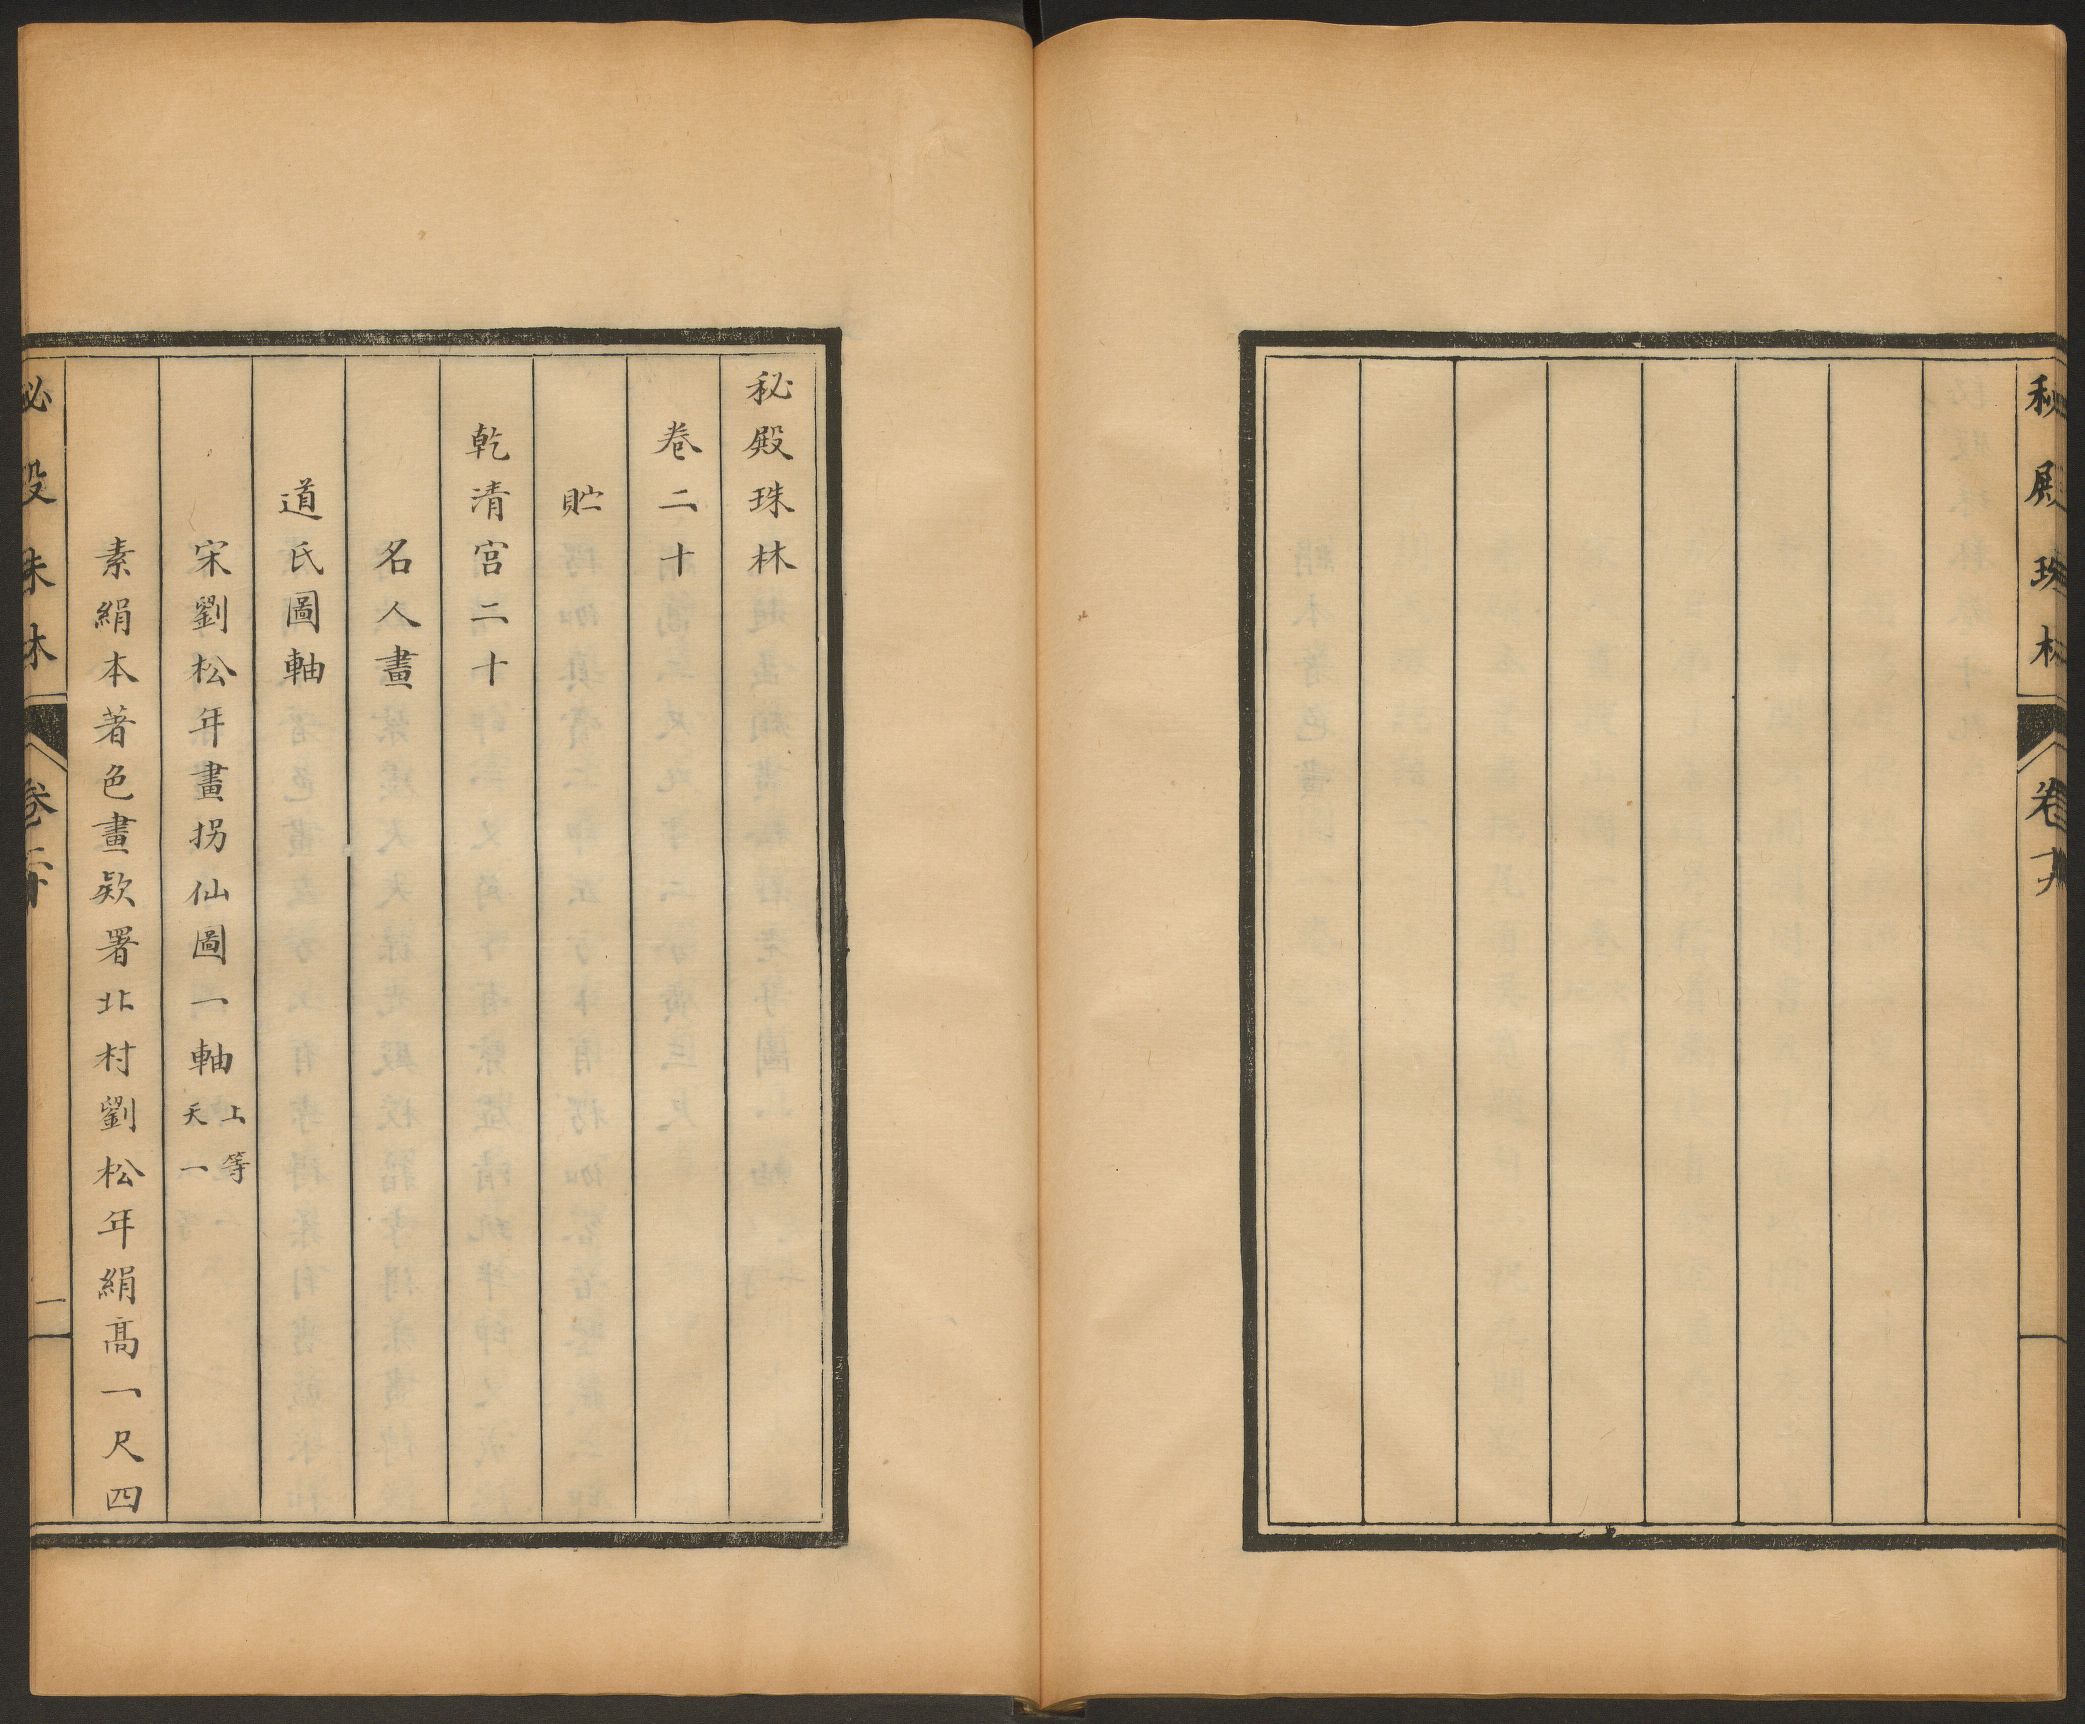 秘殿珠林
卷十九
秘殿珠林
卷二十
貯
乾清宮二十
名人畫
道氏圖軸
宋劉松年畫拐仙圖一軸 上等 天一
素絹本著色畫欵署北村劉松年絹高一尺四
秘殿珠林
卷二十
一